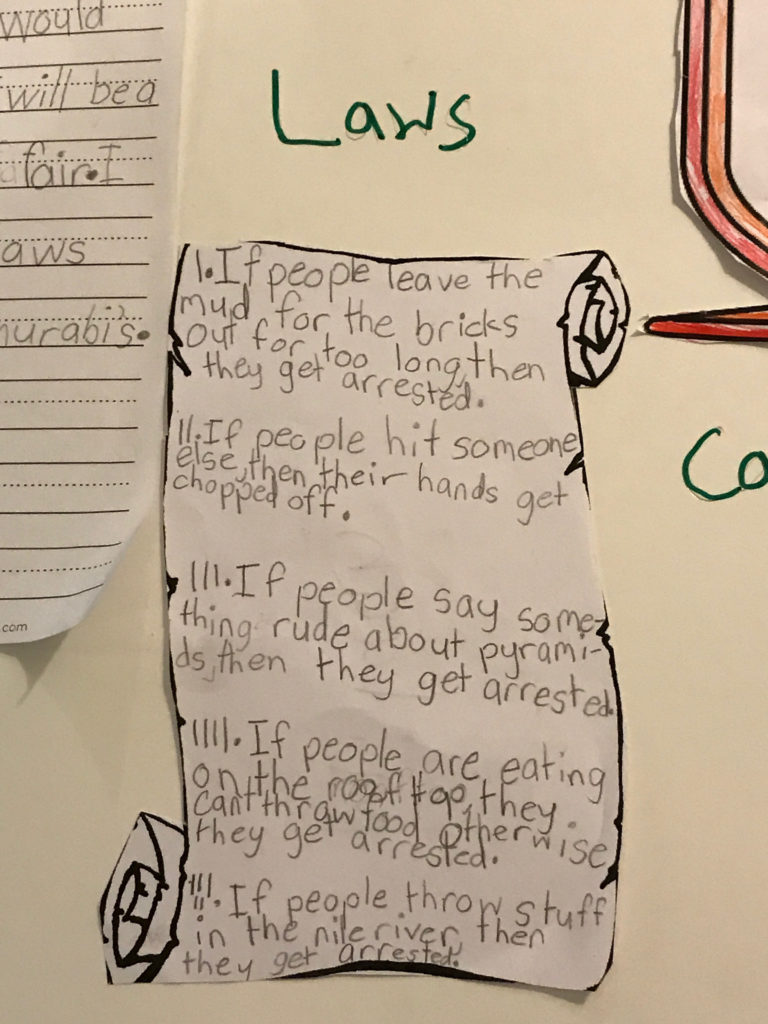 would
will be a
fair. I
aws
urabi's.
.com
Laws
Co
I. If people leave the
mud for the bricks
out for too long, then
they get arrested.
II. If people hit someone
else, then their hands get
chopped off.
III. If people say some-
thing rude about pyrami-
ds, then they get arrested.
IIII. If people are eating
on the rooftop, they
can't throw food otherwise
they get arrested.
IIIII. If people throw stuff
in the nile river, then
they get arrested.